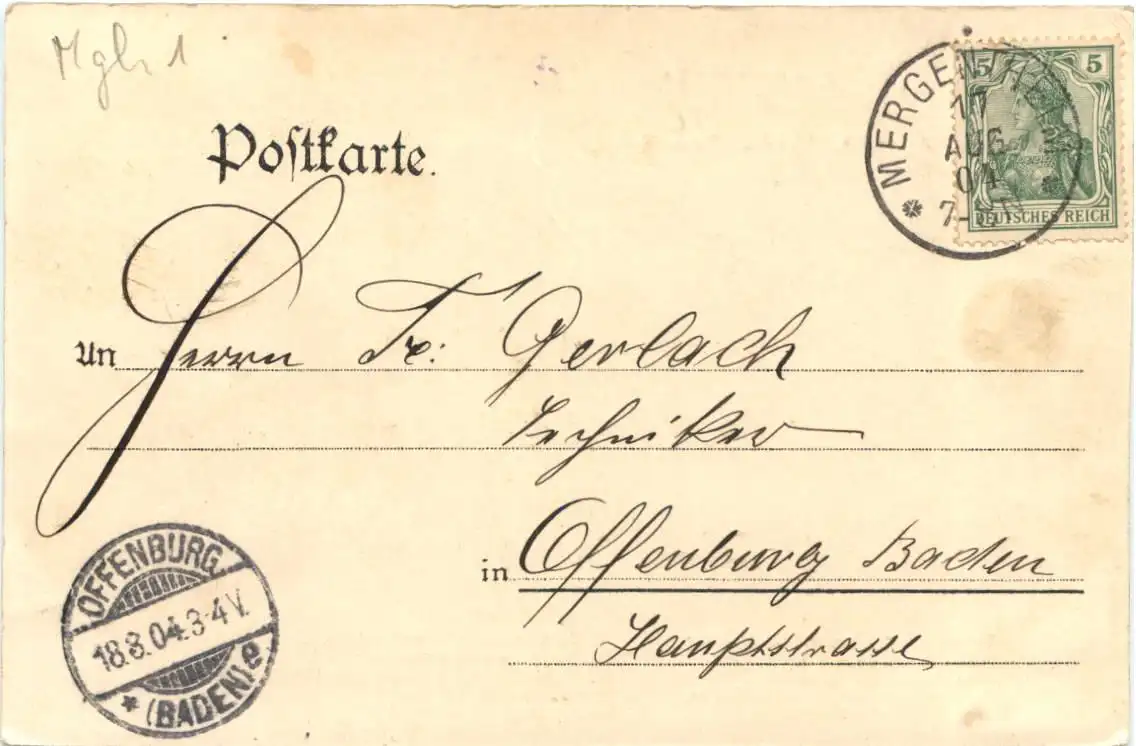 Mgh 1
Postkarte.
5 5
DEUTSCHES REICH
MERGENTH
17
AUG
04
7-8N
An Herrn Fr: Gerlach
Techniker
in Offenburg Baden
Hauptstrasse
OFFENBURG.
18.8.04.3-4V.
* (BADEN) e